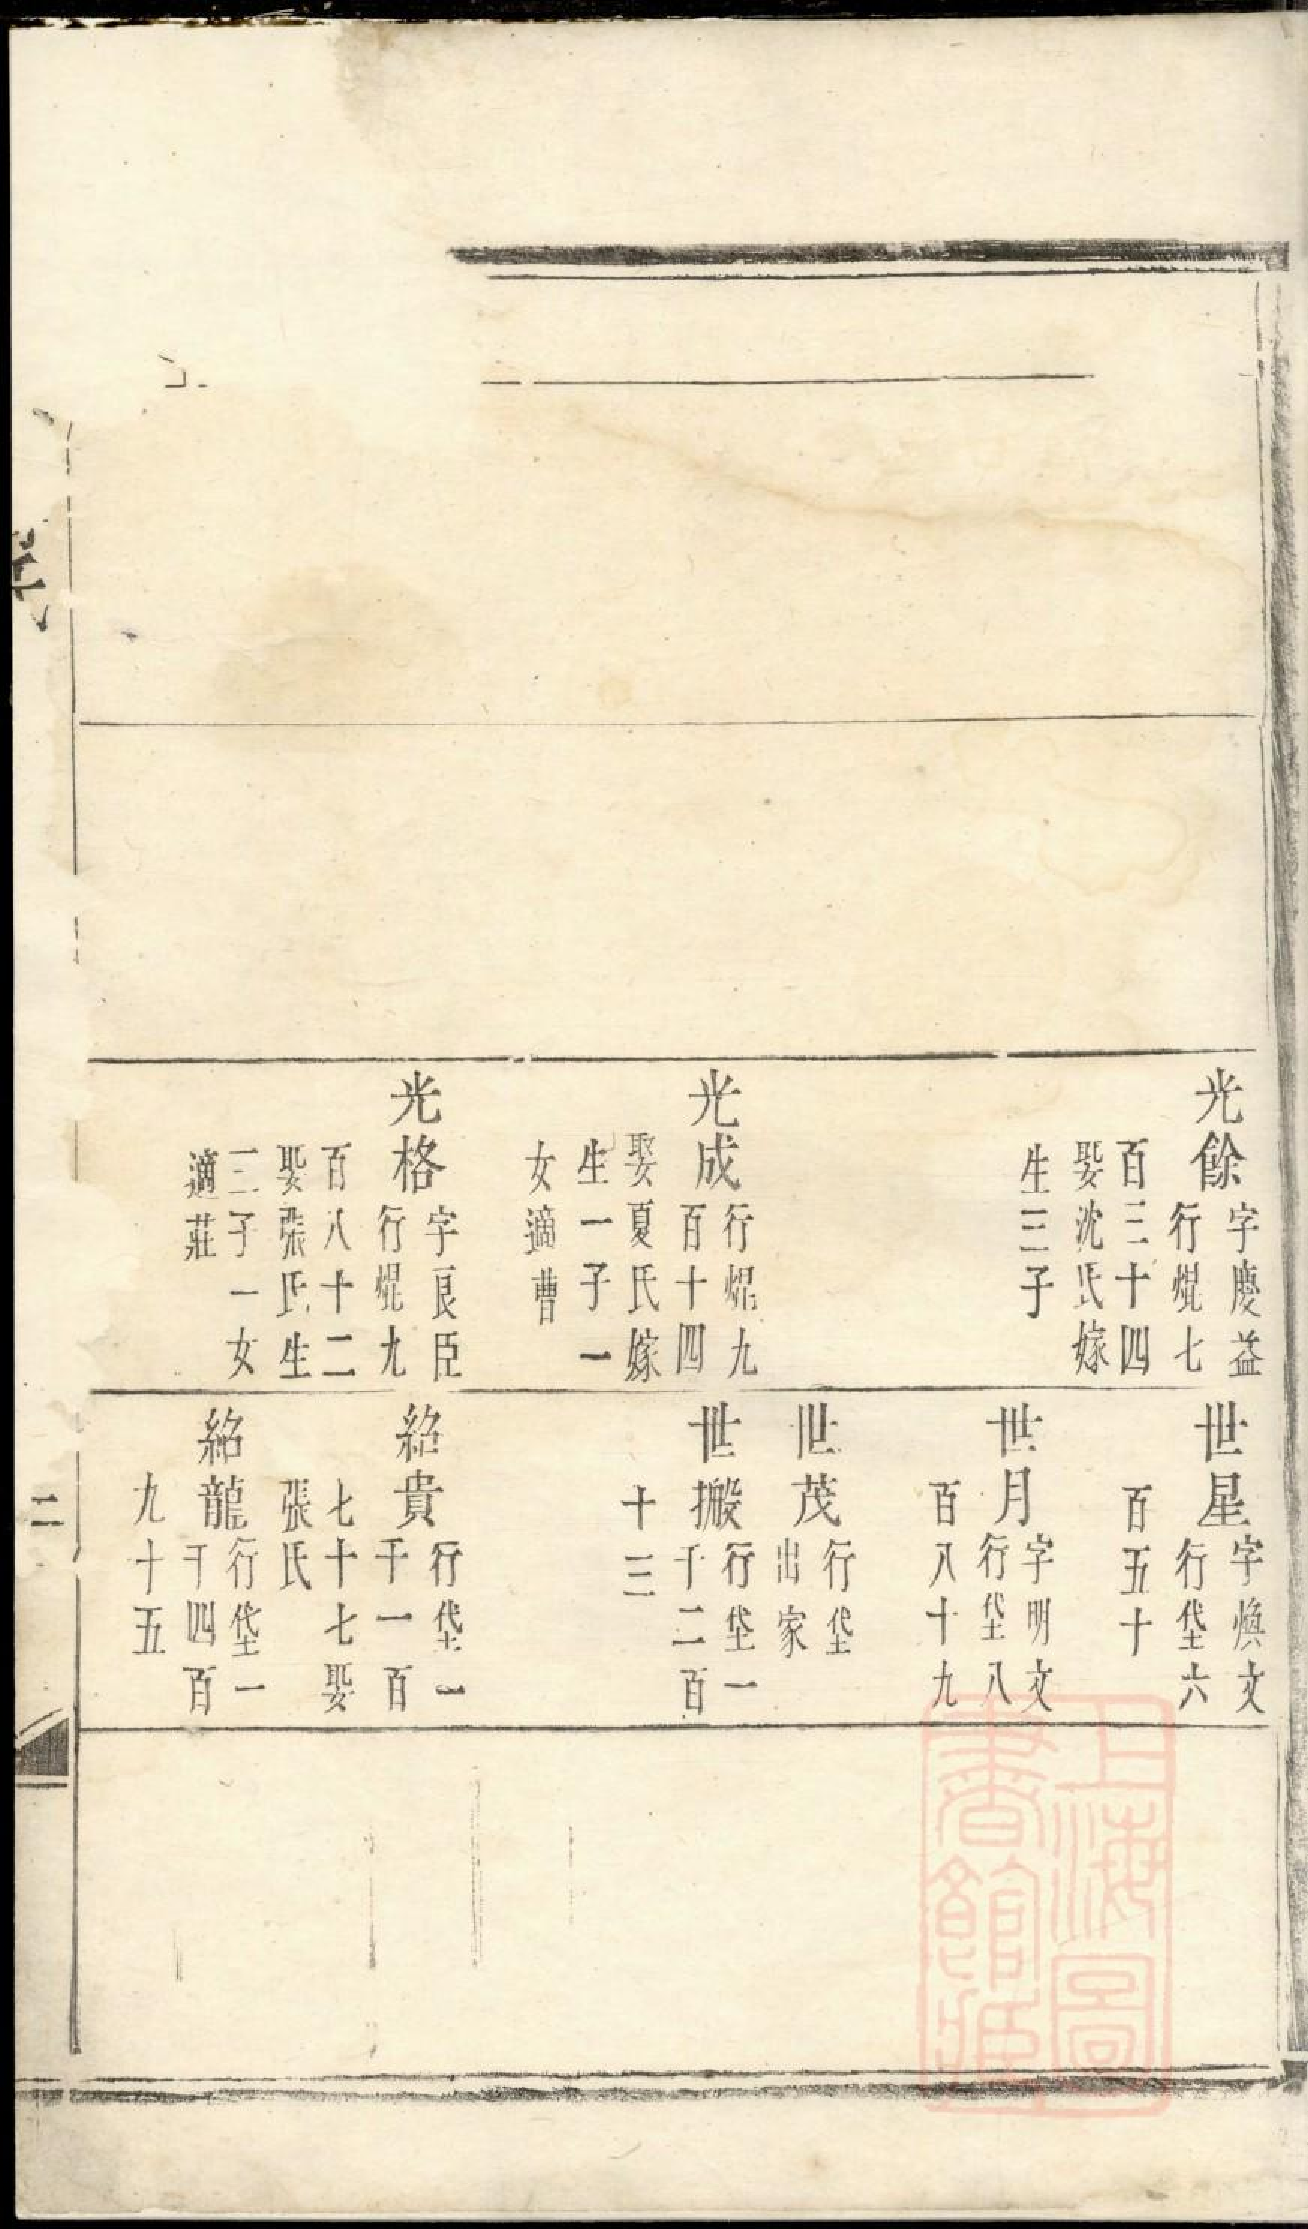 光餘
字慶益
行焜七
百三十四
娶沈氏嫁
生三子
光成
行焜九
百十四
娶夏氏嫁
生一子一
女適曹
光格
字良臣
行焜九
百八十二
娶張氏生
三子一女
適莊
世星
字煥文
行垈六
百五十
世月
字明文
行垈八
百八十九
世茂
行垈
出家
世搬
行垈一
千二百
十三
紹貴
行垈一
千一百
七十七娶
張氏
紹龍
行垈一
千四百
九十五
二
上海圖
書館藏